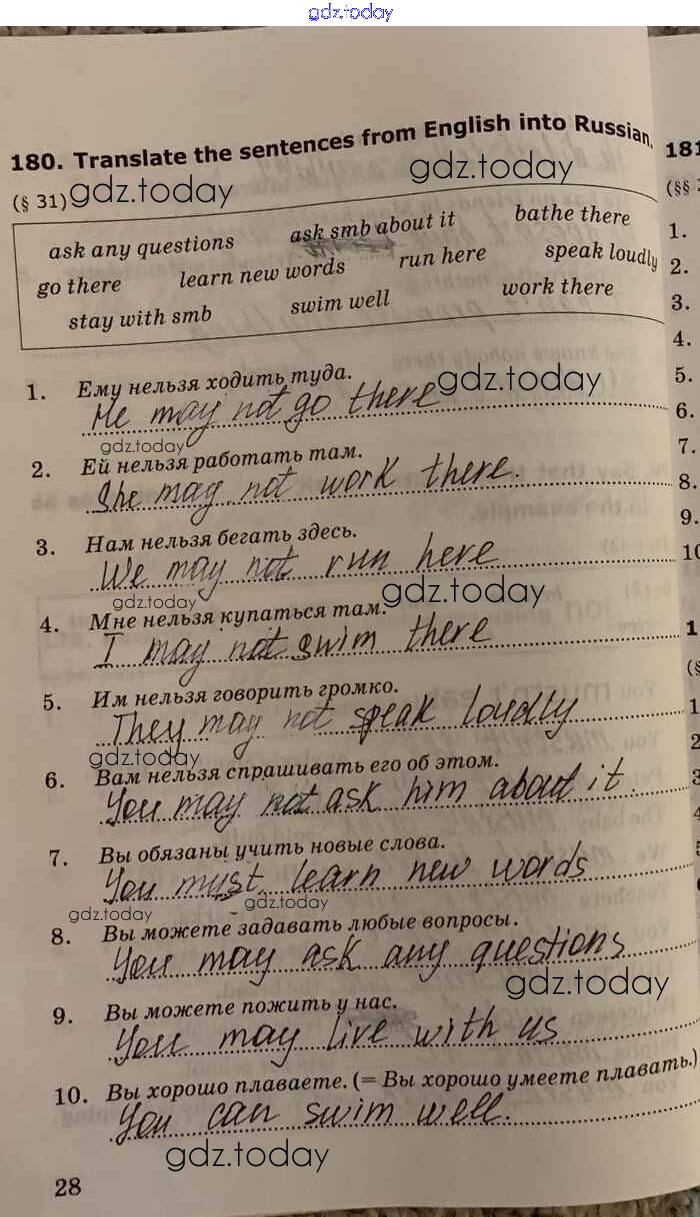 gdz.today
180. Translate the sentences from English into Russian.
(§ 31) gdz.today gdz.today
ask any questions ask smb about it bathe there
go there learn new words run here speak loudly
stay with smb swim well work there
1. Ему нельзя ходить туда.
He may not go there gdz.today
gdz.today
2. Ей нельзя работать там.
She may not work there.
3. Нам нельзя бегать здесь.
We may not run here
gdz.today gdz.today
4. Мне нельзя купаться там.
I may not swim there
5. Им нельзя говорить громко.
They may not speak loudly
gdz.today
6. Вам нельзя спрашивать его об этом.
You may not ask him about it.
7. Вы обязаны учить новые слова.
You must learn new words
gdz.today gdz.today
8. Вы можете задавать любые вопросы.
You may ask any questions
gdz.today
9. Вы можете пожить у нас.
You may live with us
10. Вы хорошо плаваете. (= Вы хорошо умеете плавать.)
You can swim well.
gdz.today
28
181
(§§
1.
2.
3.
4.
5.
6.
7.
8.
9.
10
1
(§
1
2
3
4
5